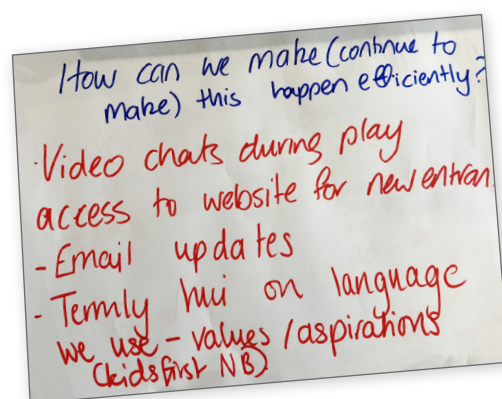 How can we make (continue to
make) this happen efficiently?
·Video chats during play
access to website for new entran
- Email updates
- Termly hui on language
we use - values / aspirations
(kidsfirst NB)